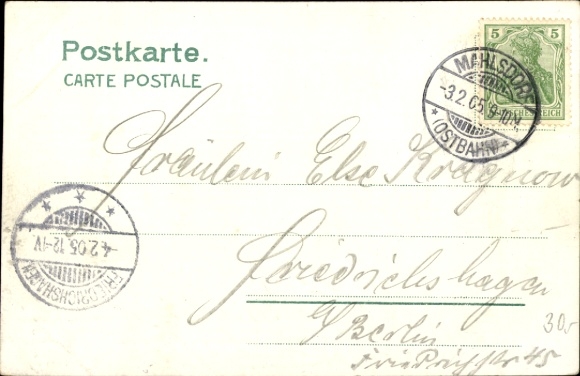 Postkarte.
CARTE POSTALE
5 5
MAHLSDORF
-3.2.05.9-10N.
* (OSTBAHN) *
Fräulein Else Kragnow
Friedrichshagen
a/Berlin
Friedrichstr 45
FRIEDRICHSHAGEN
-4.2.05.12-1V.
30,-